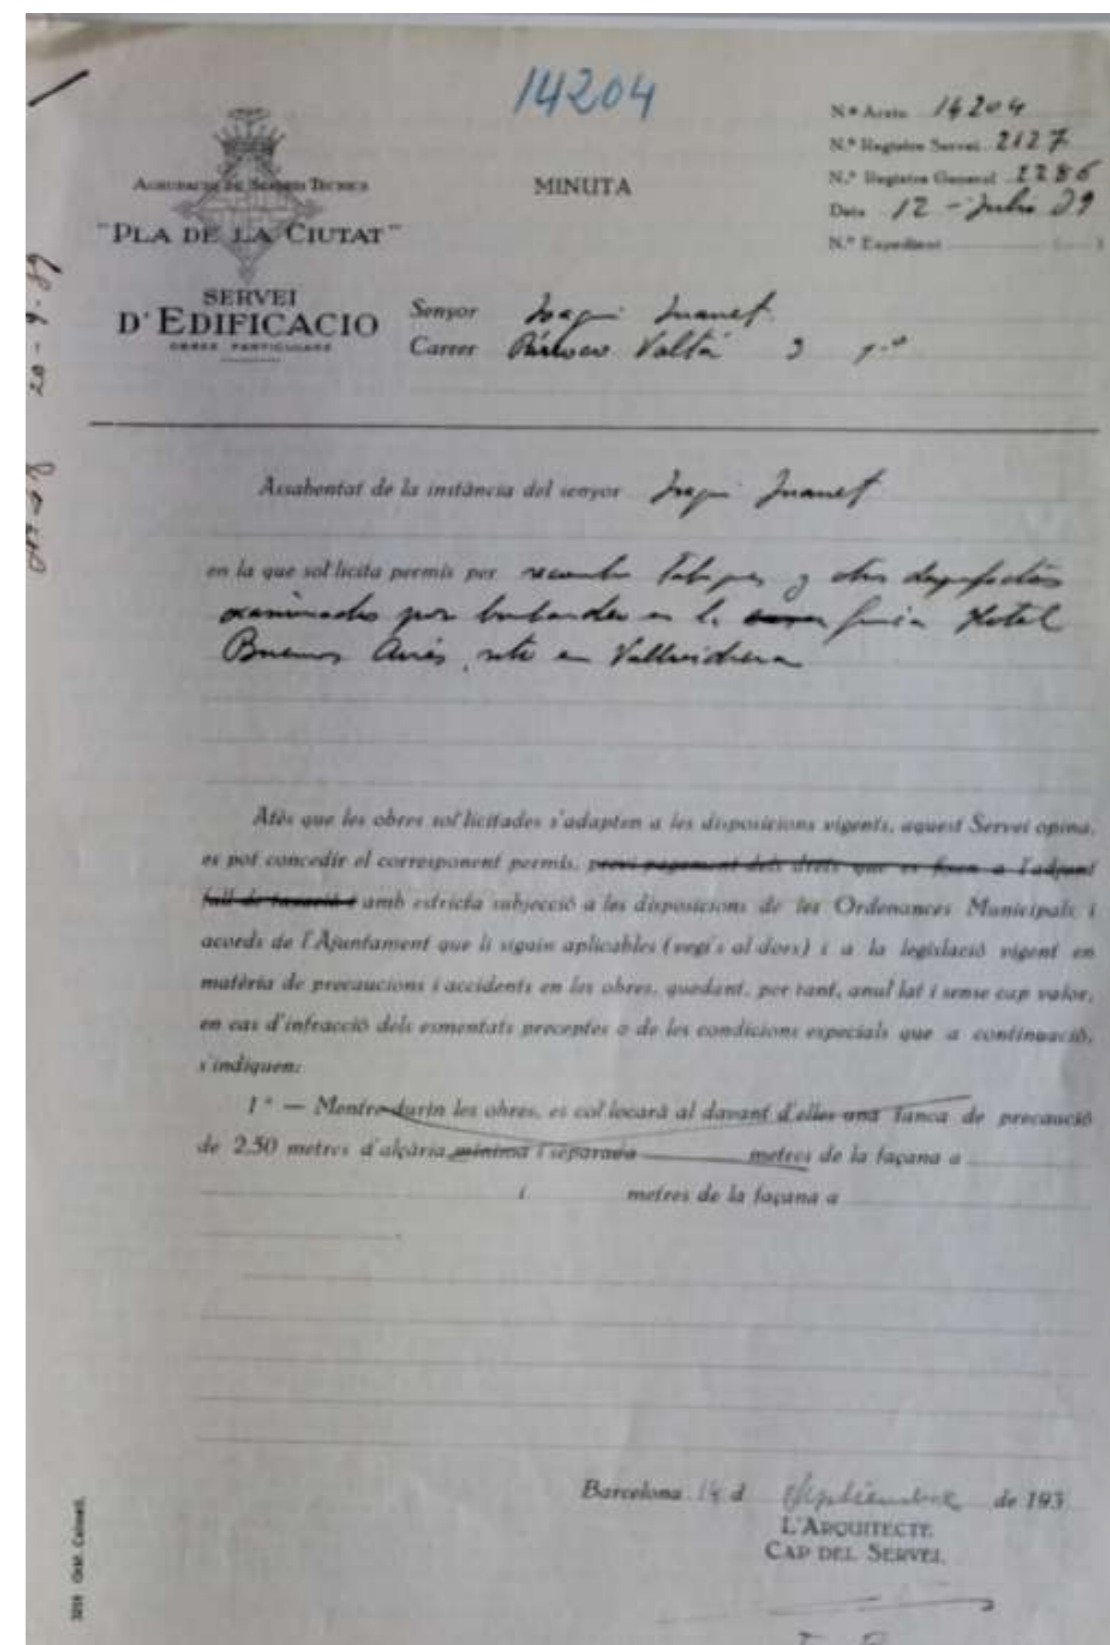 14204
N.º Arxiu 14204
N.º Registre Servei 2127
AGRUPACIO DE SERVEIS TECNICS
MINUTA
N.º Registre General 2286
Data 12 - Julio 39
"PLA DE LA CIUTAT"
N.º Expedient
SERVEI
D'EDIFICACIO
OBRES PARTICULARS
Senyor Joaqui Juanet
Carrer Párroco Valltá 3 1º
20-9-39
Assabentat de la instància del senyor Joaqui Juanet
en la que sol·licita permís per tabiques y otros desperfectos
por en la finca Hotel
Buenos Aires, sito en Vallvidrera
Atès que les obres sol·licitades s'adapten a les disposicions vigents, aquest Servei opina,
es pot concedir el corresponent permís, previ pagament dels drets que es fixen a l'adjunt
full de taxació i amb estricta subjecció a les disposicions de les Ordenances Municipals i
acords de l'Ajuntament que li siguin aplicables (vegi's al dors) i a la legislació vigent en
matèria de precaucions i accidents en les obres, quedant, per tant, anul·lat i sense cap valor,
en cas d'infracció dels esmentats preceptes o de les condicions especials que a continuació,
s'indiquen:
1ª — Mentre durin les obres, es col·locarà al davant d'elles una tanca de precaució
de 2,50 metres d'alçària mínima i separada metres de la façana a
i metres de la façana a
Barcelona 14 d Septiembre de 193
L'ARQUITECTE
CAP DEL SERVEI,